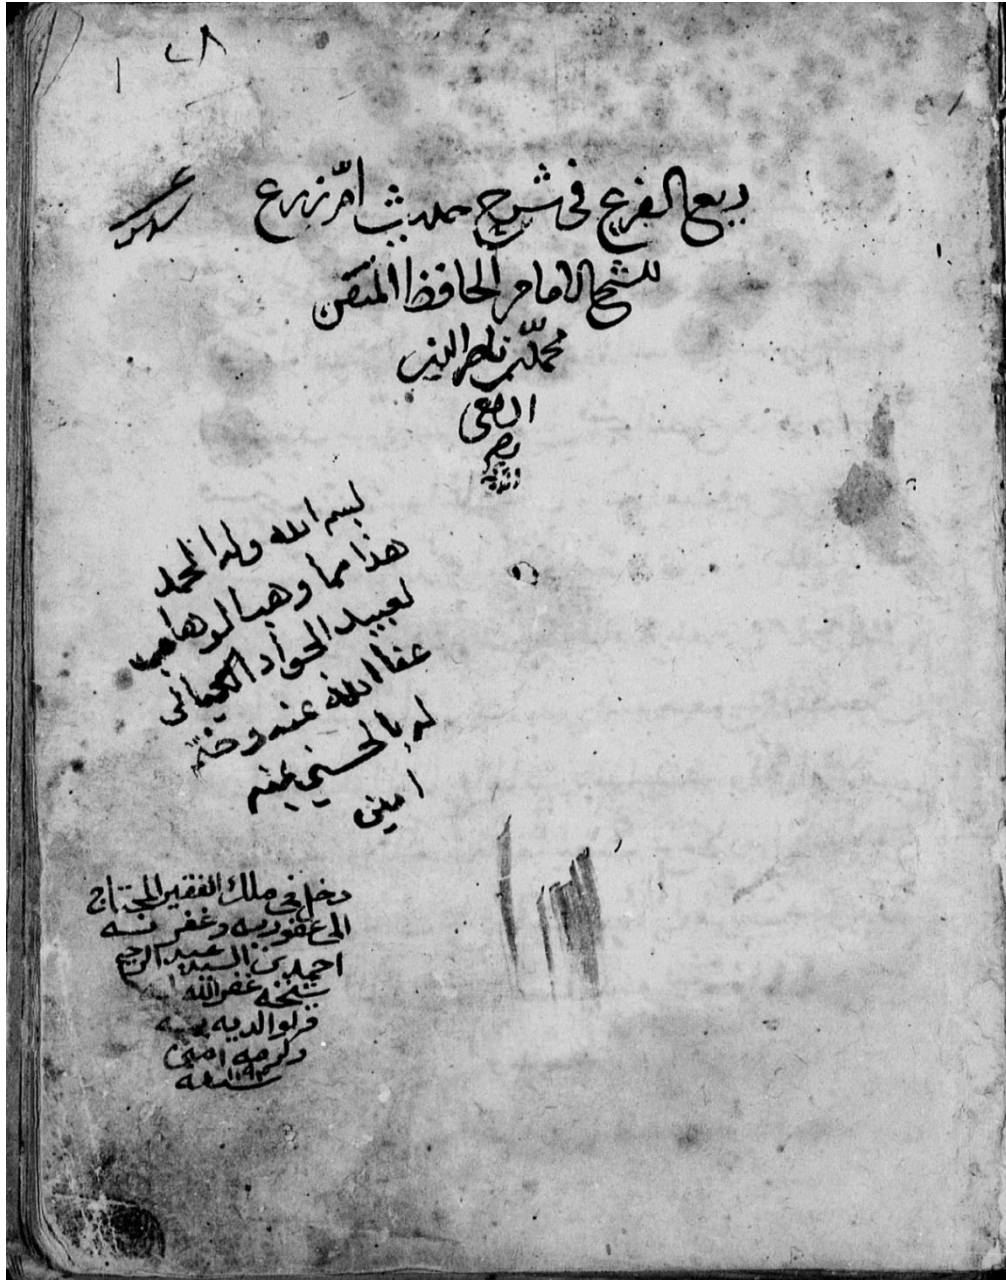 ٢٨
ربيع الفرع في شرح حديث ام زرع
للشيخ الامام الحافظ المتقن
محمد بن ناصر الدين
بسم الله وله الحمد
هذا مما وهب الوهاب
لعبيد الجواد الكيالي
عفا الله عنه وختم
له بالحسنى بمنه
امين
دخل في ملك الفقير المحتاج
الى عفو ربه وغفرانه
احمد بن السيد عبد الرحيم
غفر الله
ولوالديه
وكرمه امين
سنة ١١٩٢